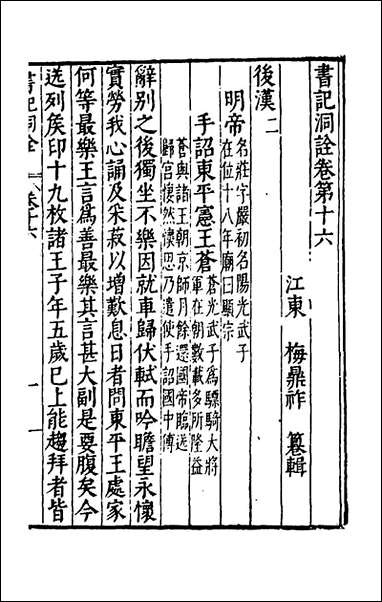 書記洞詮卷第十六
江東　梅鼎祚　纂輯
後漢二
明帝
名莊字嚴初名陽光武子
在位十八年廟曰顯宗
手詔東平憲王蒼
蒼光武子爲驃騎大將
軍在朝數載多所隆益
蒼與諸王朝京師月餘還國帝臨送
歸宮悽然懷思乃遣使手詔國中傅
辭別之後獨坐不樂因就車歸伏軾而吟瞻望永懷
實勞我心誦及采菽以增歎息日者問東平王處家
何等最樂王言爲善最樂其言甚大副是要腹矣今
送列矦印十九枚諸王子年五歲已上能趨拜者皆
書記洞詮
卷十六
一